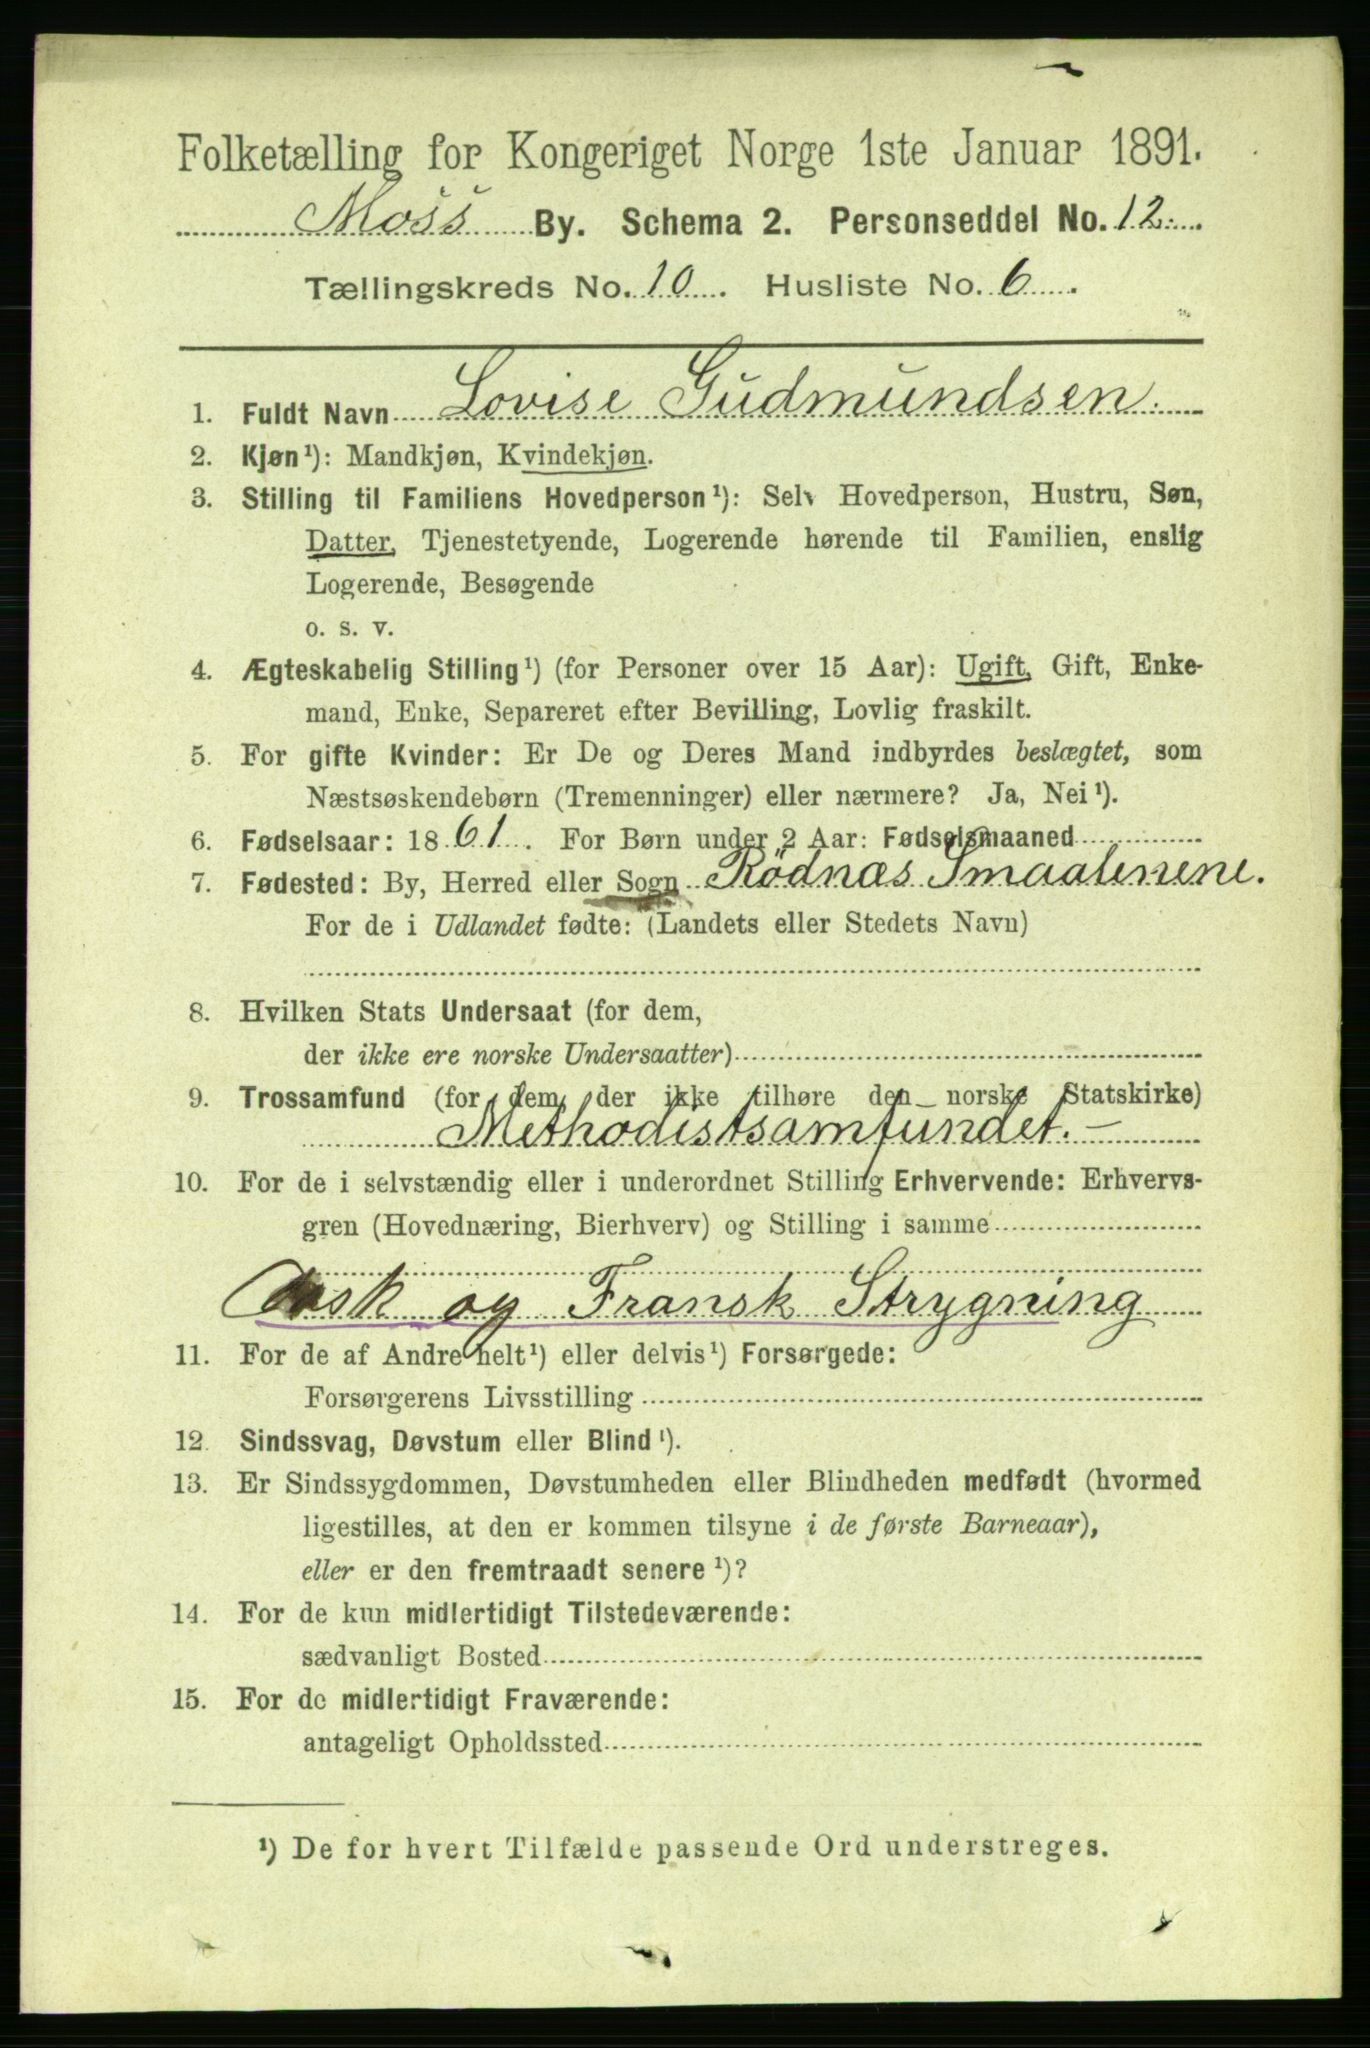 Folketælling for Kongeriget Norge 1ste Januar 1891.
Moss By. Schema 2. Personseddel No. 12.
Tællingskreds No. 10. Husliste No. 6.
1. Fuldt Navn Lovise Gudmundsen.
2. Kjøn¹): Mandkjøn, Kvindekjøn.
3. Stilling til Familiens Hovedperson¹): Selv Hovedperson, Hustru, Søn,
Datter, Tjenestetyende, Logerende hørende til Familien, enslig
Logerende, Besøgende
o. s. v.
4. Ægteskabelig Stilling¹) (for Personer over 15 Aar): Ugift, Gift, Enke-
mand, Enke, Separeret efter Bevilling, Lovlig fraskilt.
5. For gifte Kvinder: Er De og Deres Mand indbyrdes beslægtet, som
Næstsøskendebørn (Tremenninger) eller nærmere? Ja, Nei¹).
6. Fødselsaar: 1861. For Børn under 2 Aar: Fødselsmaaned
7. Fødested: By, Herred eller Sogn Rödnæs Smaalenene.
For de i Udlandet fødte: (Landets eller Stedets Navn)
8. Hvilken Stats Undersaat (for dem,
der ikke ere norske Undersaatter)
9. Trossamfund (for dem, der ikke tilhøre den norske Statskirke)
Methodistsamfundet. –
10. For de i selvstændig eller i underordnet Stilling Erhvervende: Erhvervs-
gren (Hovednæring, Bierhverv) og Stilling i samme
og Fransk Strygning
11. For de af Andre helt¹) eller delvis¹) Forsørgede:
Forsørgerens Livsstilling
12. Sindssvag, Døvstum eller Blind¹).
13. Er Sindssygdommen, Døvstumheden eller Blindheden medfødt (hvormed
ligestilles, at den er kommen tilsyne i de første Barneaar),
eller er den fremtraadt senere¹)?
14. For de kun midlertidigt Tilstedeværende:
sædvanligt Bosted
15. For de midlertidigt Fraværende:
antageligt Opholdssted
¹) De for hvert Tilfælde passende Ord understreges.